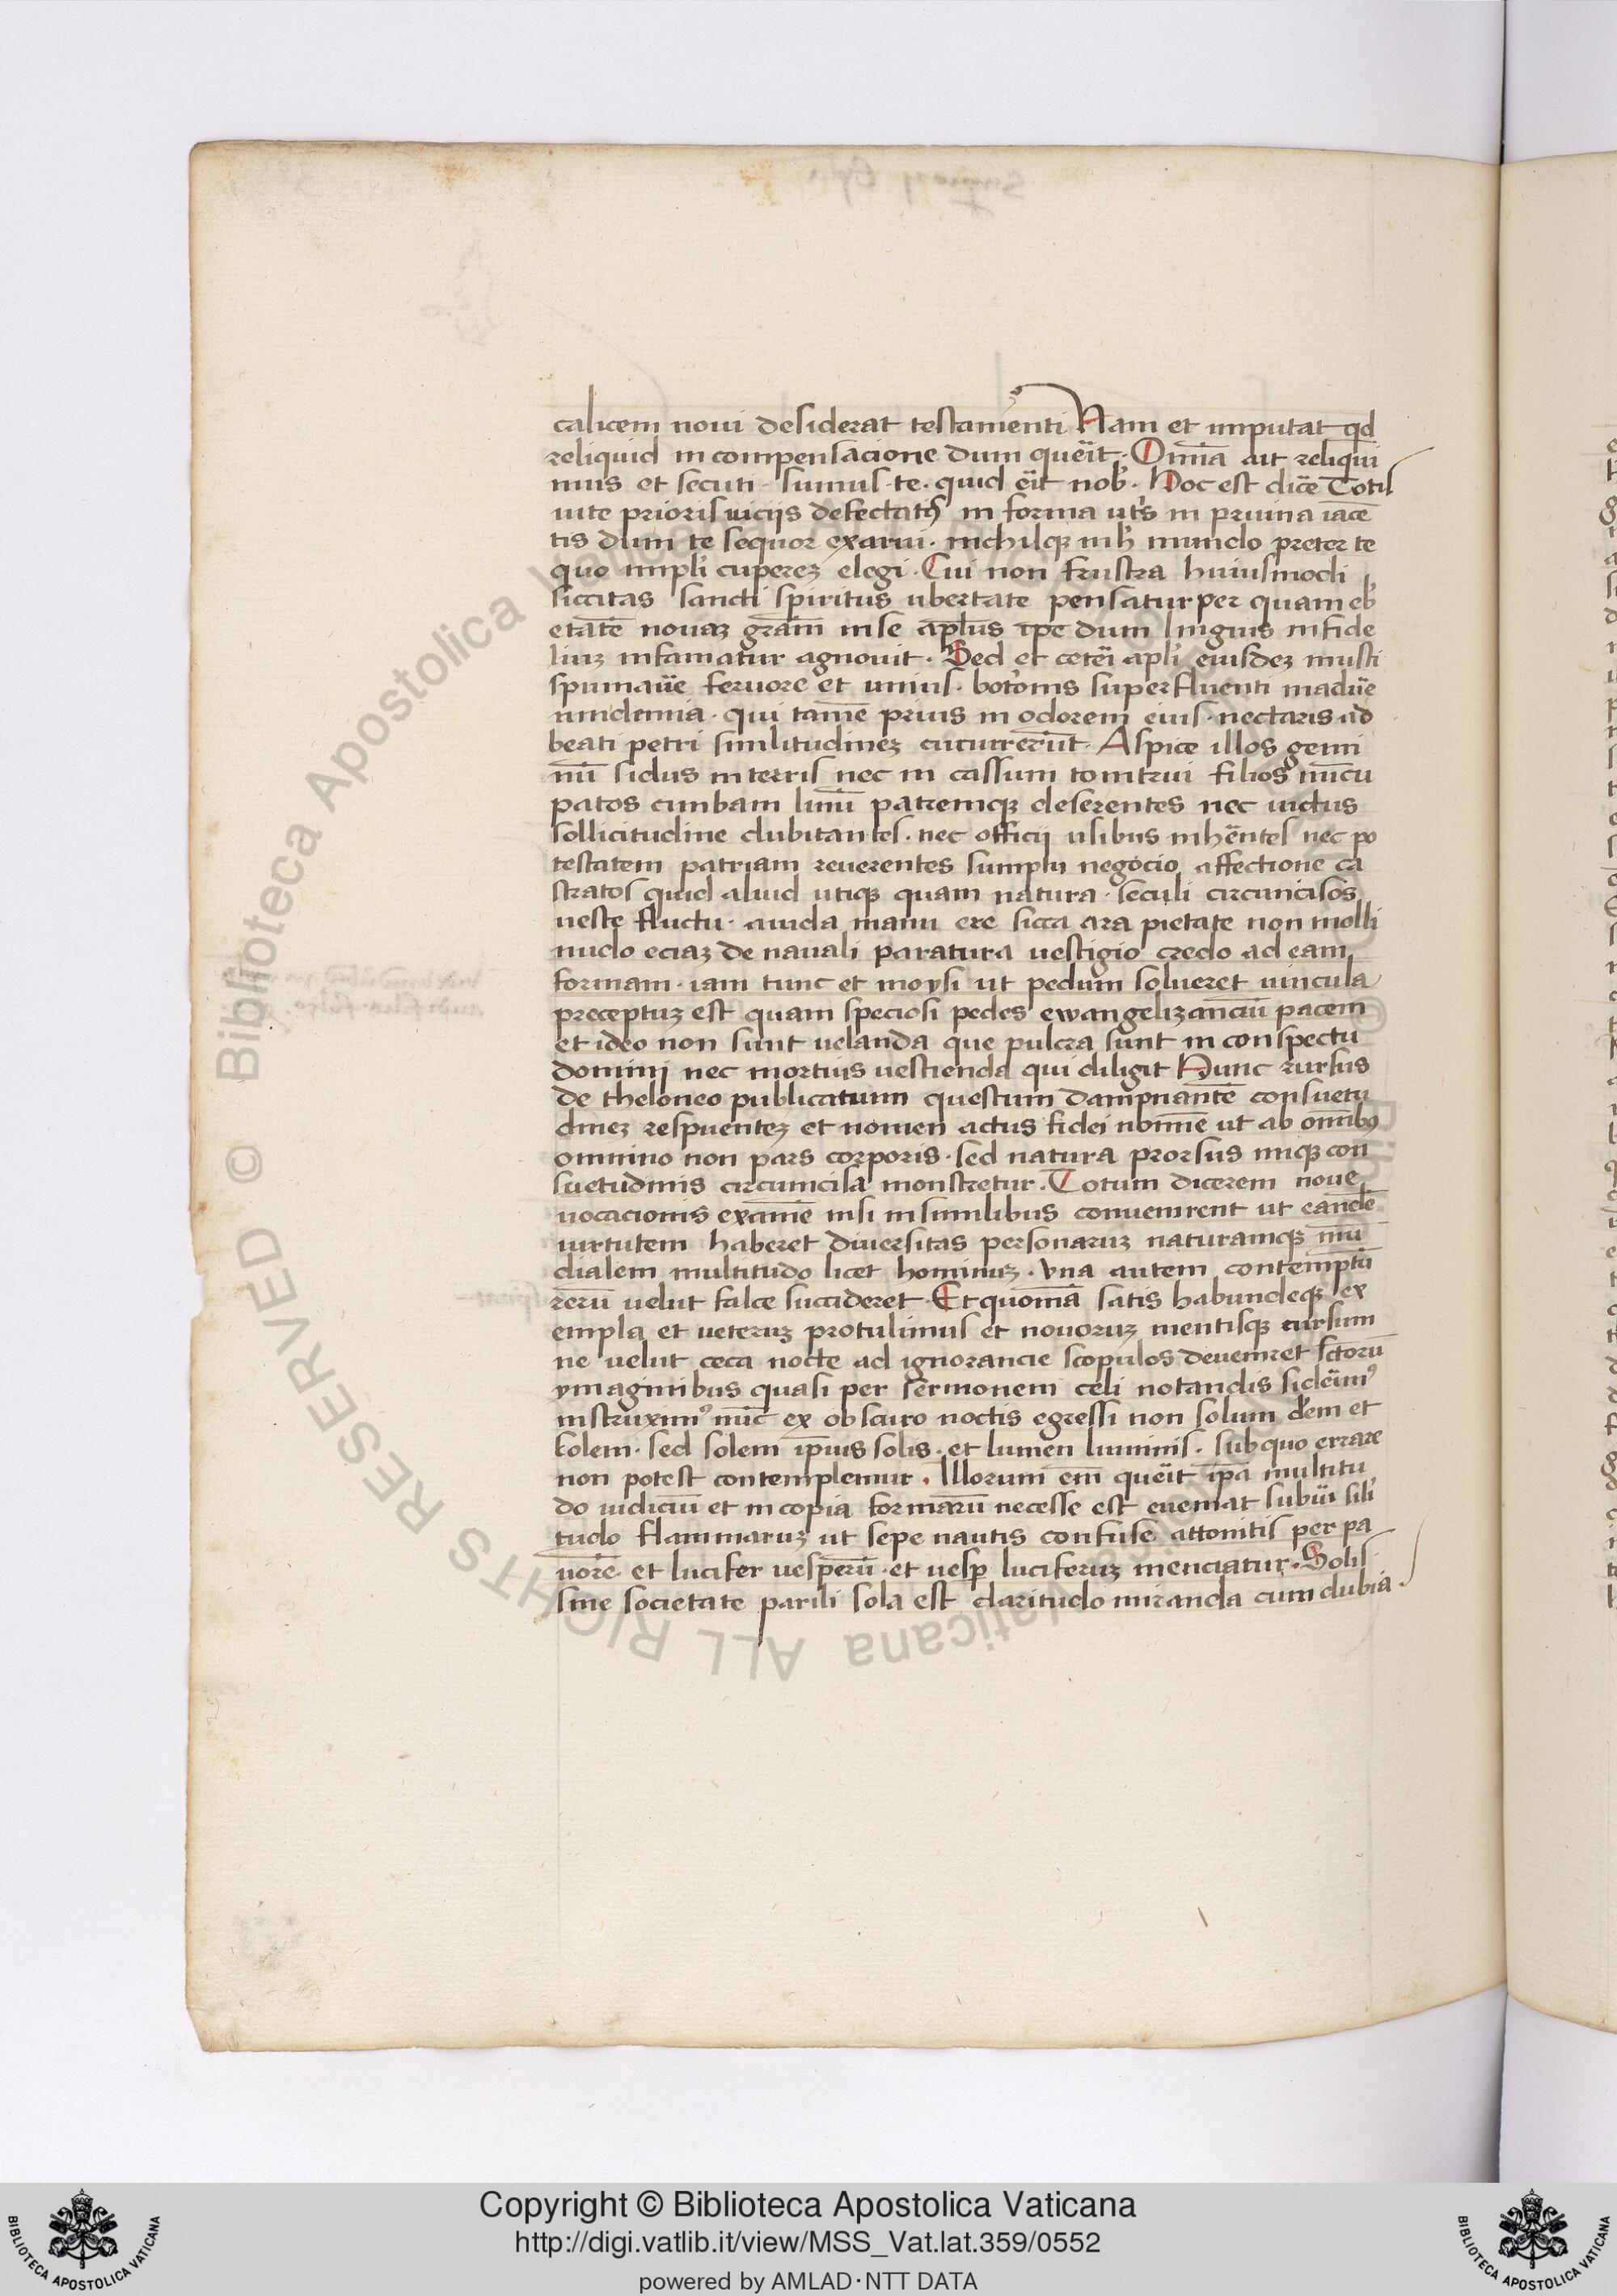 calicem noui desiderat testamenti Nam et imputat qd
reliquid in compensacione dum quēit. Omīa ait reliqui
mus et secuti sumus te. quid ēit nob̄. Hoc est dic̄e Totis
uite prioris uiciis defectatꝯ in forma ut͛s in pruina iacē
tis dum te sequor exarui. nichilqꝫ mh̄ mundo preter te
quo impli cuperez elegi. Cui non frustra huiusmodi
siccitas sancti spiritus ubertate pensatur per quam eb̄
etatē nouaꝫ grām in se apl̄us ip̄e dum linguis infide
liuꝫ infamatur agnouit. Sed et cetēi apl̄i eiusdeꝫ musti
spumaūe feruore et unius. bot͛onis superfluenti madūe
uindemia. qui tamē prius in odorem eius nectaris ad
beati petri similitudineꝫ cucurrer̄ūt. Aspice illos gemi
nū sidus in terris nec in cassum tonitrui filios nūcu
patos cimbam linū patremqꝫ deserentes nec uictus
sollicitudine dubitantes. nec officij usibus inhēntes nec po
testatem patriam reuerentes sumptu negocio affectione ca
stratos quid aliud utiqꝫ quam natura seculi circuncisos
ueste fluctu. auida manu ere sicca ara pietate non molli
nudo eciaꝫ de nauali paratura uestigio credo ad eam
formam. iam tunc et moysi ut pedum solueret uincula
preceptuꝫ est quam speciosi pedes ewangelizanciū pacem
et ideo non sunt uelanda que pulcra sunt in conspectu
domini nec mortuis uestienda qui diligit Hunc rursus
de theloneo publicatum questum dampnantē consuetu
dineꝫ respuenteꝫ et nomen actus fidei noīne ut ab om̄ibꝯ
omnino non pars corporis. sed natura prorsus uniqꝫ con
suetudinis circumcisa monstretur. Totum dicerem noue
uocacionis examē nisi in similibus conuenirent ut eandē
uirtutem haberet diuersitas personaruꝫ naturamqꝫ mū
dialem multitudo licet hominuꝫ. vna autem contemptū
rerū uelut falce succideret. Et quoniā satis habundeqꝫ ex
empla et ueteruꝫ protulimus et nouoruꝫ mentisqꝫ cursum
ne uelut ceca nocte ad ignorancie scopulos deueniret sctorū
ymaginibus quasi per sermonem celi notandis sidēim⁹
instruxim⁹ nūc ex obscuro noctis egressi non solum dꝉem et
solem. sed solem ip̄ius solis. et lumen luminis. sub quo errare
non potest contemplemur. Illorum em̄ quēit ip̄a multitu
do iudiciū et in copia formarū necesse est eueniat subūi sili
tudo flammaruꝫ ut sepe nautis confuse attonitis per pa
uorē et lucifer uesperū. et uesꝑ luciferuꝫ menciatur. Solis
sine societate parili sola est claritudo miranda cum dubia.
Copyright © Biblioteca Apostolica Vaticana
http://digi.vatlib.it/view/MSS_Vat.lat.359/0552
powered by AMLAD·NTT DATA
BIBLIOTECA APOSTOLICA VATICANA
BIBLIOTECA APOSTOLICA VATICANA
© Biblioteca Apostolica Vaticana ALL RIGHTS RESERVED